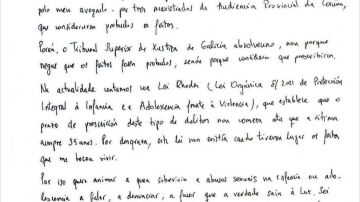 polo meu avogado. por tres maxistrados da Audiencia Provincial da Coruña,
que consideraron probados os feitos.
Porén, o Tribunal Superior de Xustiza de Galicia absolveuno, non porque
negue que os feitos foran probados, senón porque considera que prescribiron.
Na actualidade contamos coa Lei Rhodes (Lei Orgánica 8/2021 de Protección
Integral á Infancia e a Adolescencia fronte á Violencia), que establece que o
prazo de prescrición deste tipo de delitos non comeza ata que a vítima
cumpre 35 anos. Por desgraza, esta lei non existía cando tiveron lugar os feitos
que me tocou vivir.
Por iso quero animar a quen sobrevivía a abusos sexuais na infancia ou ado-
lescencia a falar, a denunciar, a facer que a verdade saia á luz. Sei